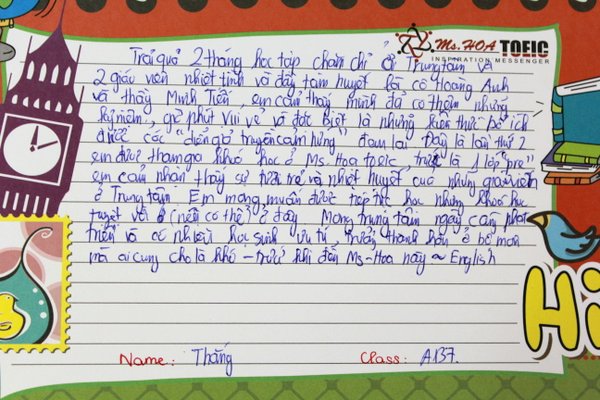 Ms. HOA TOEIC
INSPIRATION MESSENGER
Trải quả 2 tháng học tập chăm chỉ ở Trung tâm và
2 giáo viên nhiệt tình và đầy tâm huyết là cô Hoàng Anh
và thầy Minh Tiến, em cảm thấy mình đã có thêm những
kỷ niệm, giờ phút vui vẻ và đặc biệt là những kiến thức bổ ích
được các "diễn giả truyền cảm hứng" đem lại Đây là lần thứ 2
em được tham gia khoá học ở Ms. Hoa toeic trước là 1 lớp "pre"
em cảm nhận thấy sự trẻ và nhiệt huyết của những giáo viên
ở Trung tâm Em mong muốn được tiếp tục học những khoá học
tuyệt vời ở (nếu có thể) ở đây Mong trung tâm ngày càng phát
triển và có nhiều học sinh ưu tú, trưởng thành hơn ở bộ môn
mà ai cũng cho là khó - trước khi đến Ms-Hoa này ~ English
Name: Thắng Class: A137.
Hi